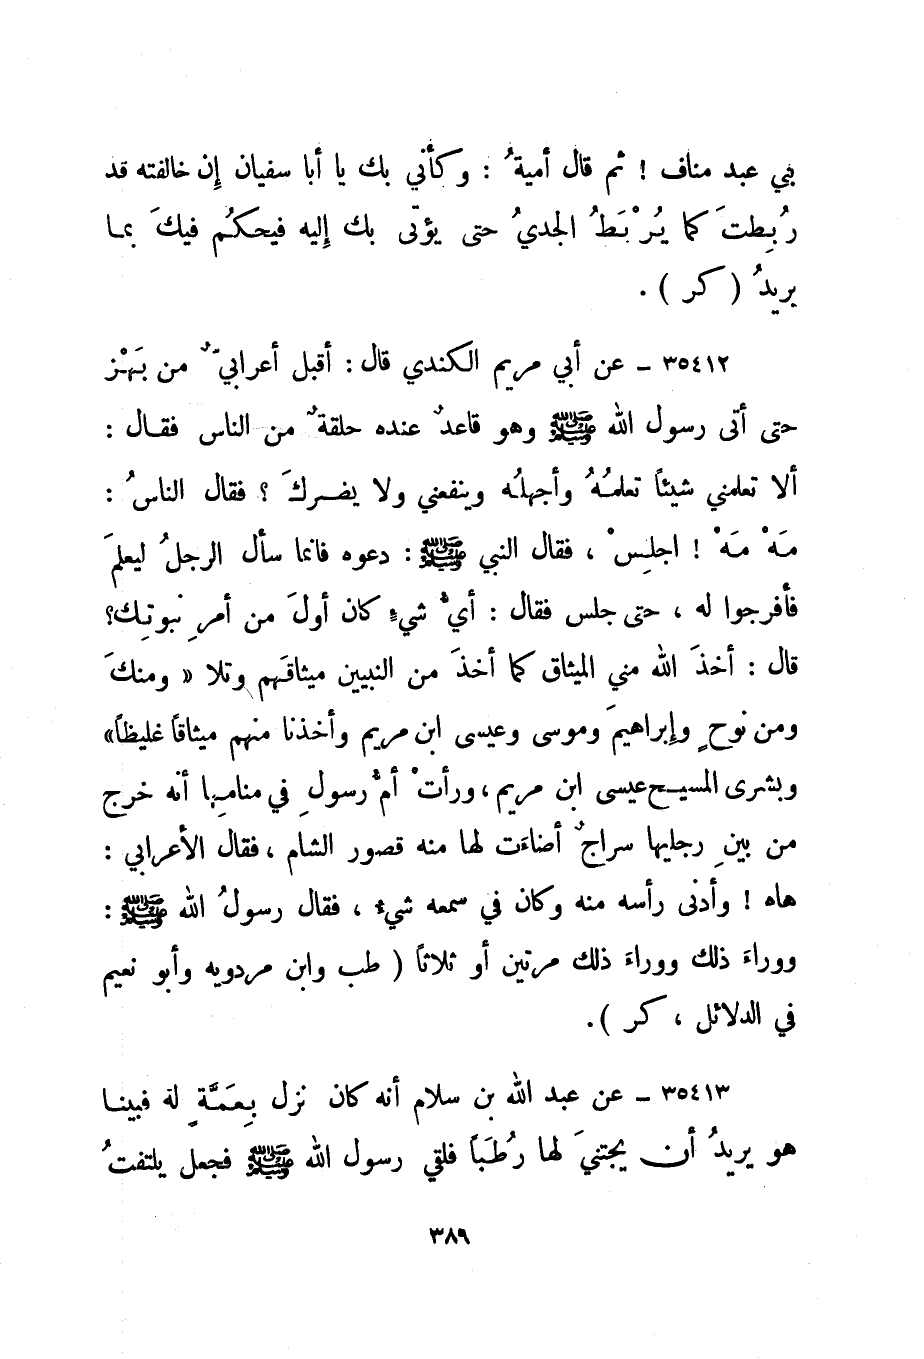 بني عبد مناف ! ثم قال أميةُ : وكأني بك يا أبا سفيان إن خالفته قد
رُبِطتَ كما يُرْبَطُ الجديُ حتى يؤتى بك إليه فيحكُم فيكَ بما
يريدُ ( كر ) .
٣٥٤١٢ - عن أبي مريم الكندي قال : أقبل أعرابيٌّ من بَهْز
حتى أتى رسول الله ﷺ وهو قاعدٌ عنده حلقةٌ من الناس فقال :
ألا تعلمني شيئاً تعلمُهُ وأجهلُه وينفعني ولا يضركَ ؟ فقال الناسُ :
مَهْ مَهْ ! اجلِسْ ، فقال النبي ﷺ : دعوه فانما سأل الرجلُ ليعلمَ
فأفرجوا له ، حتى جلس فقال : أيُّ شيءٍ كان أولَ من أمرِ نبوتِك؟
قال : أخذَ الله مني الميثاق كما أخذَ من النبيين ميثاقَهم وتلا « ومنكَ
ومن نوحٍ وإبراهيمَ وموسى وعيسى ابن مريم وأخذنا منهم ميثاقاً غليظاً»
وبشرى المسيح عيسى ابن مريم ، ورأتْ أمُّ رسولِ في منامِها أنه خرج
من بينِ رجليها سراجٌ أضاءَت لها منه قصور الشام ، فقال الأعرابي :
هاه ! وأدنى رأسه منه وكان في سمعه شيء ، فقال رسولُ الله ﷺ :
ووراءَ ذلك ووراءَ ذلك مرتين أو ثلاثاً ( طب وابن مردويه وأبو نعيم
في الدلائل ، كر ).
٣٥٤١٣ - عن عبد الله بن سلام أنه كان نزل بِعَمَّةٍ لة فبينا
هو يريدُ أن يجتنيَ لها رُطَباً فلقي رسول الله ﷺ فجعل يلتفتُ
٣٨٩